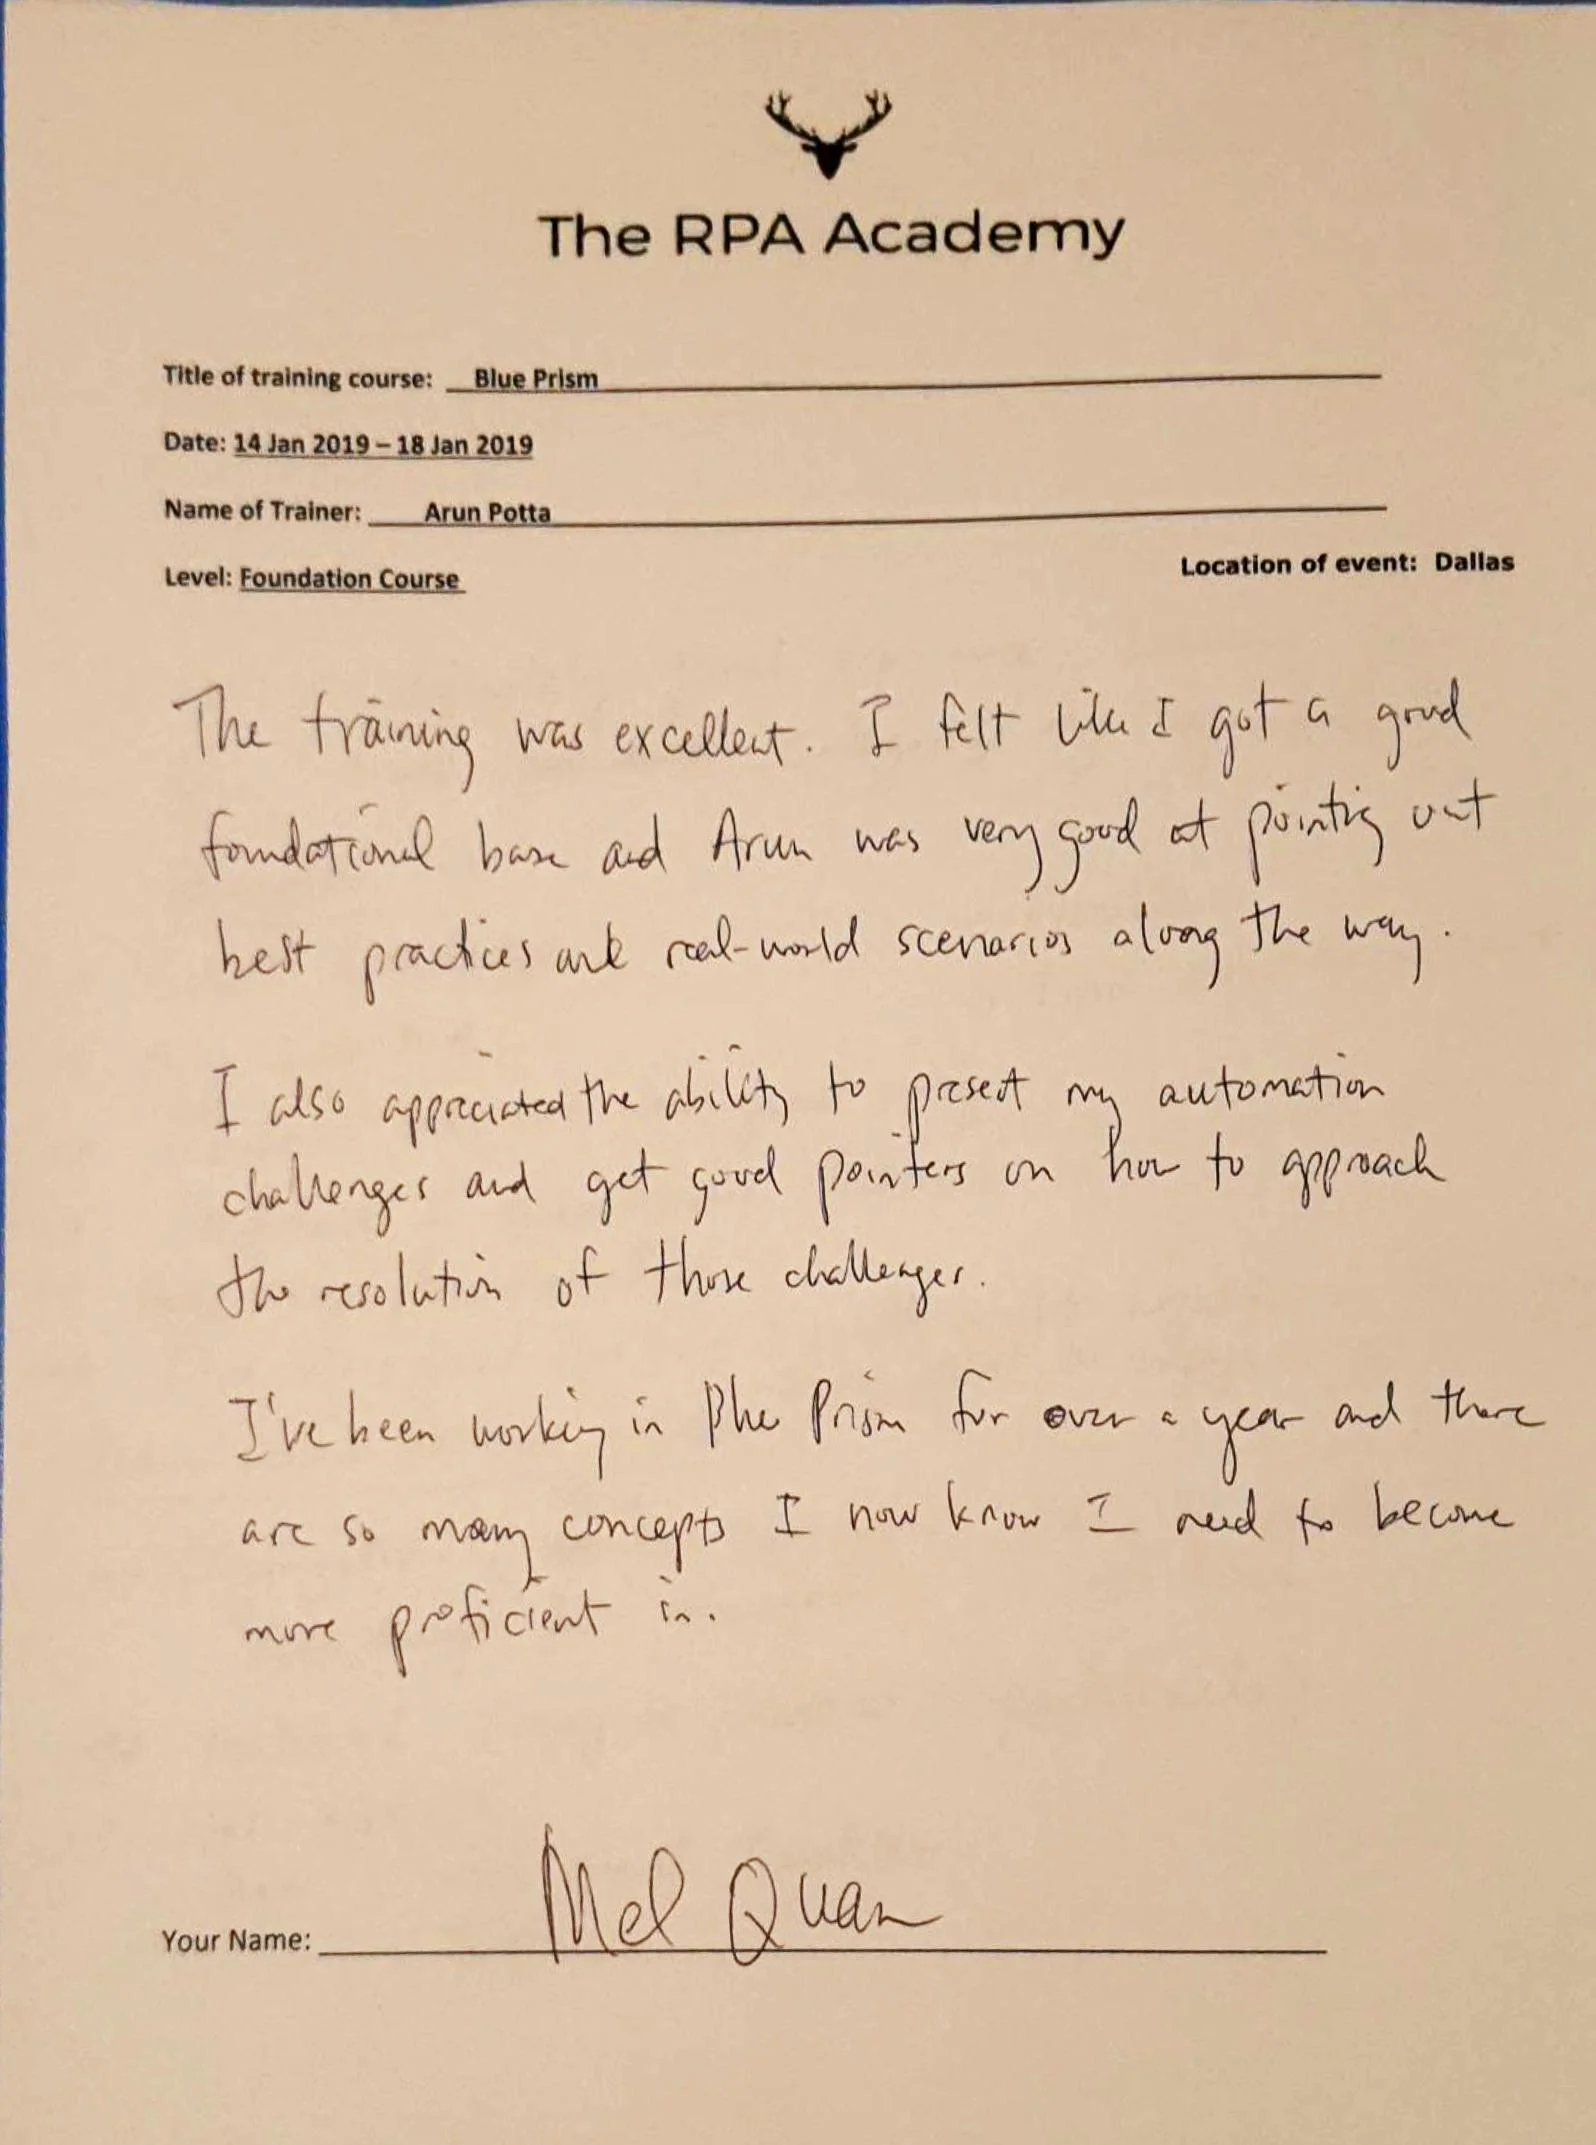 The RPA Academy
Title of training course: Blue Prism
Date: 14 Jan 2019 – 18 Jan 2019
Name of Trainer: Arun Potta
Level: Foundation Course
Location of event: Dallas
The training was excellent. I felt like I got a good
foundational base and Arun was very good at pointing out
best practices and real-world scenarios along the way.
I also appreciated the ability to present my automation
challenges and get good pointers on how to approach
the resolution of those challenges.
I've been working in Blue Prism for over a year and there
are so many concepts I now know I need to become
more proficient in.
Your Name: Mel Quan